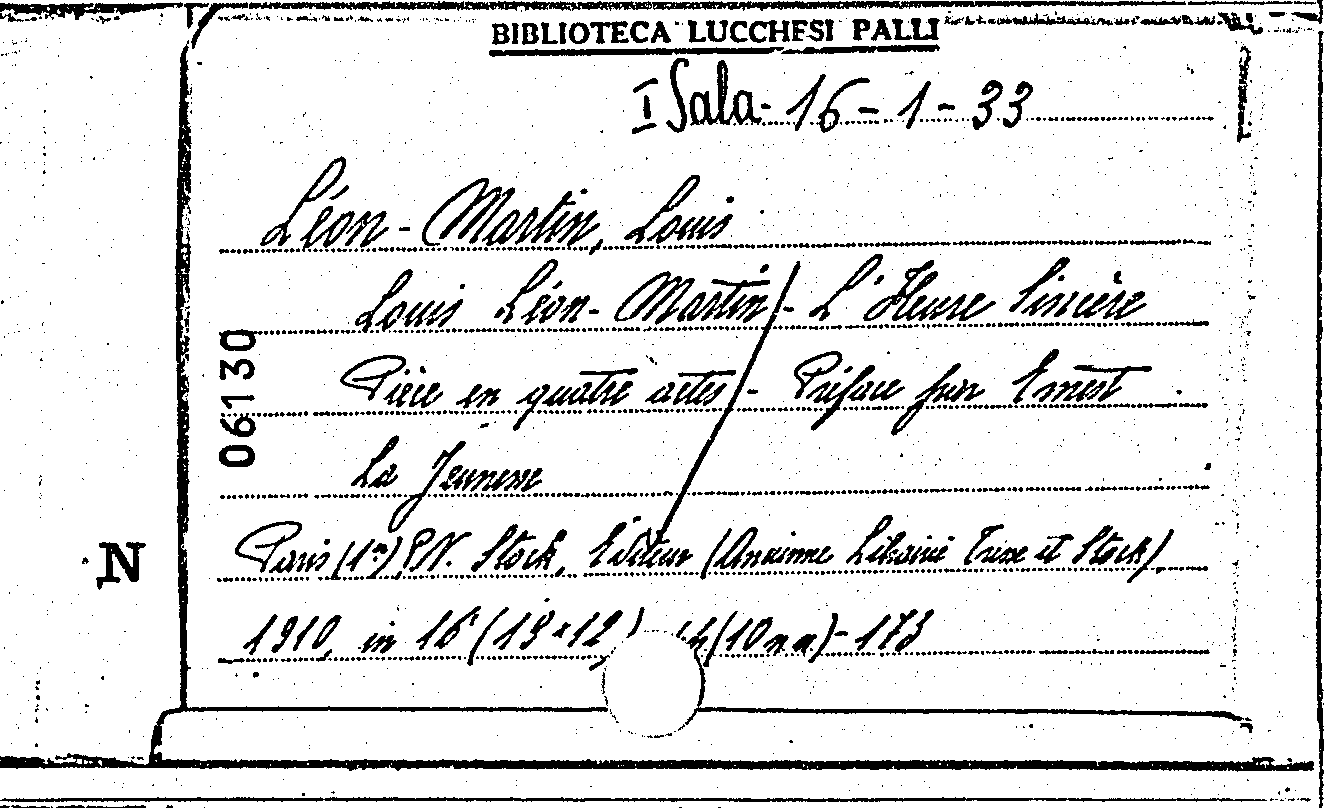 BIBLIOTECA LUCCHESI PALLI
I Sala - 16 - 1 - 33
Léon - Martin, Louis
Louis Léon - Martin - L'Heure Sincère
Pièce en quatre actes - Préface par Ernest
La Jeunesse
Paris (1er) P.V. Stock, Editeur (Ancienne Librairie Tresse et Stock),
1910, in 16 (19×12) (10 nn) - 173
06130
N